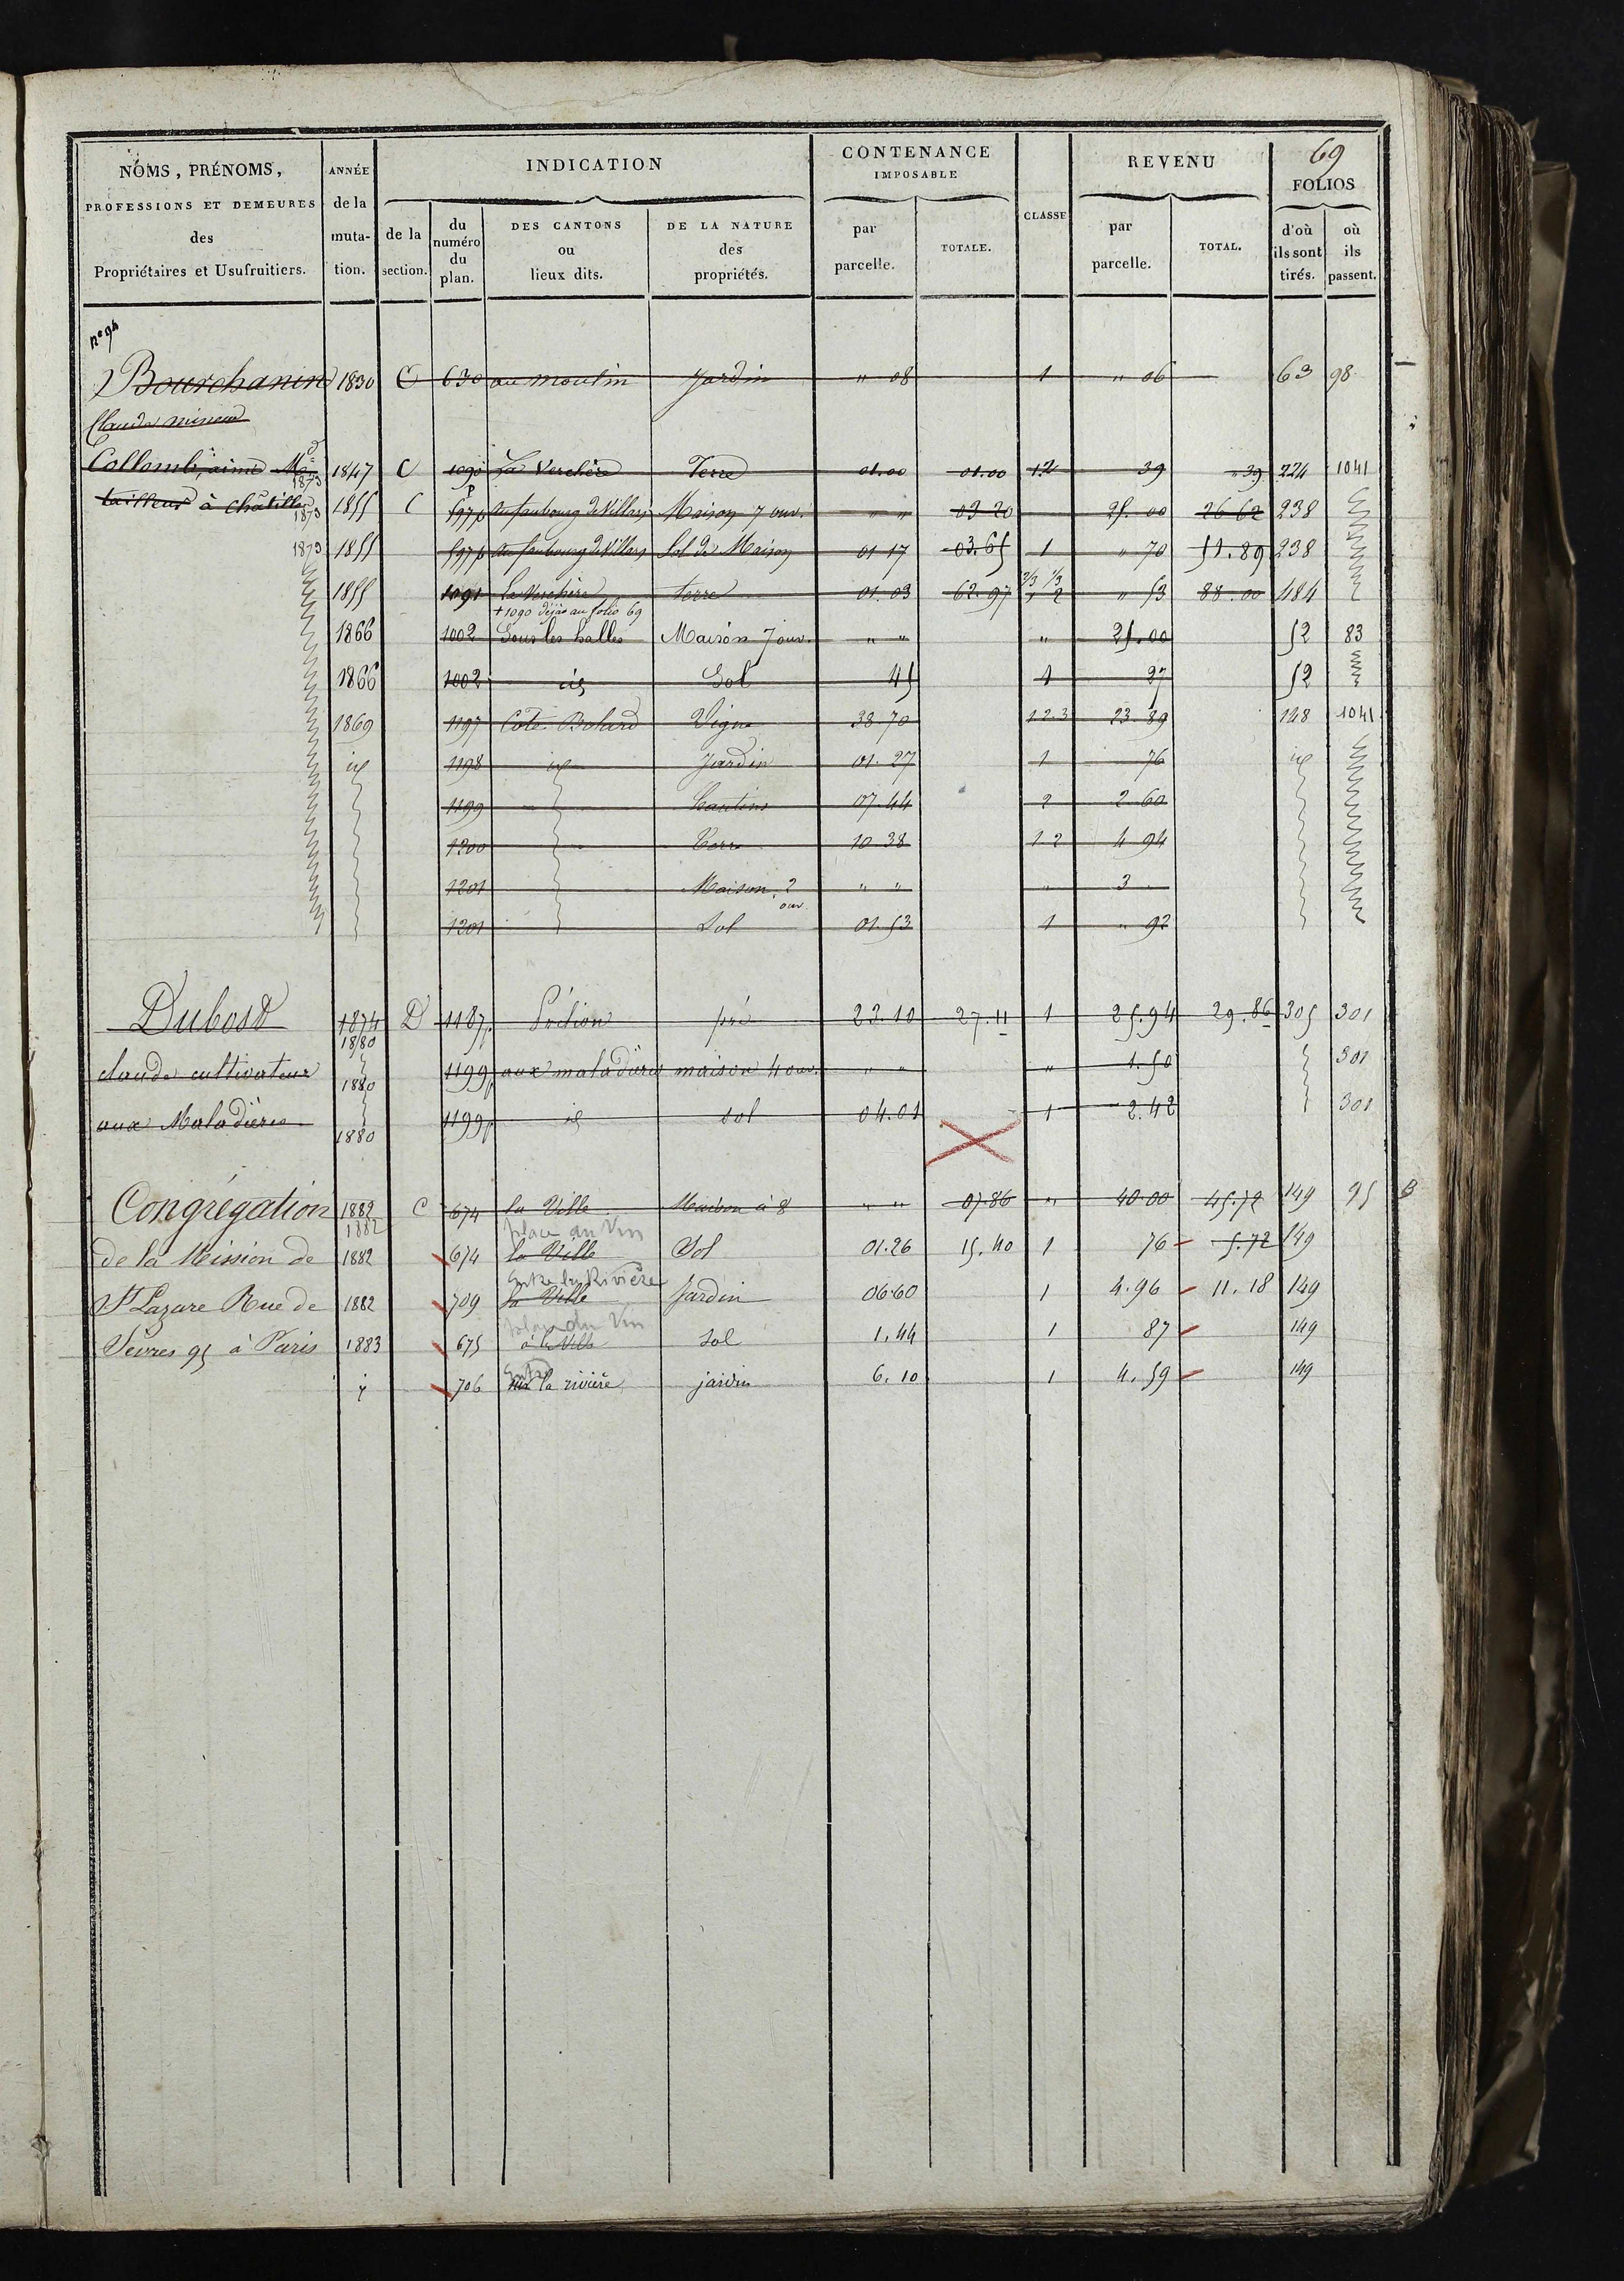 69
NOMS, PRÉNOMS, PROFESSIONS ET DEMEURES des Propriétaires et Usufruitiers.
ANNÉE de la muta- tion.
INDICATION
de la section.
du numéro du plan.
DES CANTONS ou lieux dits.
DE LA NATURE des propriétés.
CONTENANCE IMPOSABLE
par parcelle.
TOTALE.
CLASSE
REVENU
par parcelle.
TOTAL.
FOLIOS
d'où ils sont tirés.
où ils passent.
n° 94
Bourchanin 1830 C 630 au moulin Jardin " 08 1 " 06 63 98
Claude mineur
Collomb, aimé Md 1873 1847 C 1090 p La Verchère Terre 01.00 01.00 1.2 39 " 39 224 1041
tailleur à Châtillon 1873 1855 C 597 p au faubourg de Villars Maison 7 ouv. " " 03 20 25.00 26 62 238
1873 1855 597 p au faubourg de Villars Sol de Maison 01 17 03.65 1 " 70 51.89 238
1855 1091 La Verchère terre 01.03 62.97 2/3 1/3 1 2 " 53 88.00 484
+ 1090 déjà au folio 69
1866 1002 Sous les halles Maison 7 ouv. " " " 25.00 52 83
1866 1002 id Sol 45 1 27 52
1869 1197 Cote Bohard Vigne 38 70 1 2 3 23 89 148 1041
id 1198 id Jardin 01. 27 1 76 id
1199 hautins 07.44 2 2 60
1200 Terre 10 38 1 2 4 94
1201 Maison 2 ouv. " " " 3
1201 Sol 01.53 1 " 92
Dubost 1874 1880 D 1187 p pré 23.10 27.11 1 25.94 29.86 305 301
claude cultivateur 1880 1199 p aux maladières maison 4 ouv. " " " 1.50 301
aux Maladières 1880 1199 p id sol 04.01 1 2.42 301
Congrégation 1882 1882 C 674 la Ville Maison à 8 " " 07.86 " 40.00 45.72 149 95 B
place au Vin
de la Mission de 1882 674 la Ville Sol 01.26 15.40 1 76 5.72 149
Entre les Rivières
St Lazare Rue de 1882 709 la Ville Jardin 06.60 1 4.96 11.18 149
place du Vin
Sèvres 95 à Paris 1883 675 à la Ville Sol 1.44 1 87 149
Entre
id 706 sur la rivière jardin 6.10 1 4.59 149